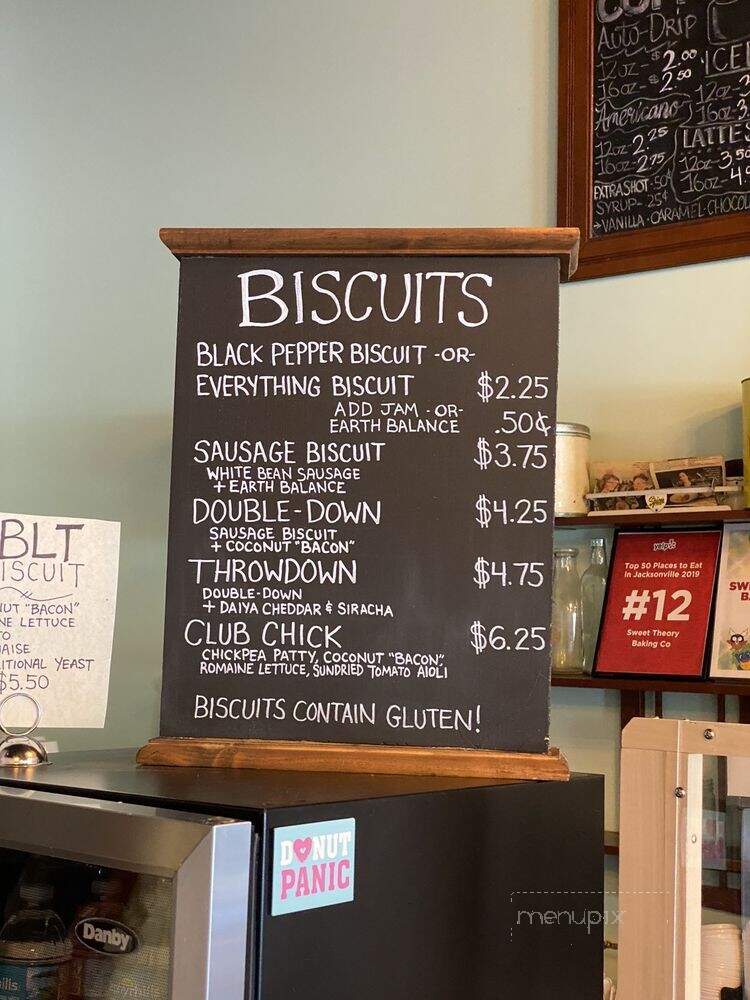 BISCUITS
BLACK PEPPER BISCUIT -OR-
EVERYTHING BISCUIT $2.25
ADD JAM -OR-
EARTH BALANCE .50¢
SAUSAGE BISCUIT $3.75
WHITE BEAN SAUSAGE
+ EARTH BALANCE
DOUBLE-DOWN $4.25
SAUSAGE BISCUIT
+ COCONUT "BACON"
THROWDOWN $4.75
DOUBLE-DOWN
+ DAIYA CHEDDAR & SIRACHA
CLUB CHICK $6.25
CHICKPEA PATTY, COCONUT "BACON",
ROMAINE LETTUCE, SUNDRIED TOMATO AIOLI
BISCUITS CONTAIN GLUTEN!
AUTO-DRIP
12oz - $2.00
16oz - $2.50
Americano
12oz 2.25
16oz 2.75
EXTRA SHOT - 50¢
SYRUP - 25¢
→VANILLA · CARAMEL ·
ICE
12oz - 3
16oz - 3
LATTES
12oz - 3.50
16oz - 4
BLT
ISCUIT
NUT "BACON"
NE LETTUCE
TO
AISE
ITIONAL YEAST
$5.50
yelp
Top 50 Places to Eat
in Jacksonville 2019
#12
Sweet Theory
Baking Co
SW
B
DONUT
PANIC
Danby
ills
menupix